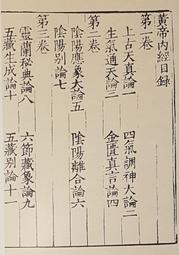 黃帝內經目錄
第一卷
上古天真論一 四氣調神大論二
生氣通天論三 金匱真言論四
第二卷
陰陽應象大論五 陰陽離合論六
陰陽別論七
第三卷
靈蘭秘典論八 六節藏象論九
五藏生成論十 五藏別論十一